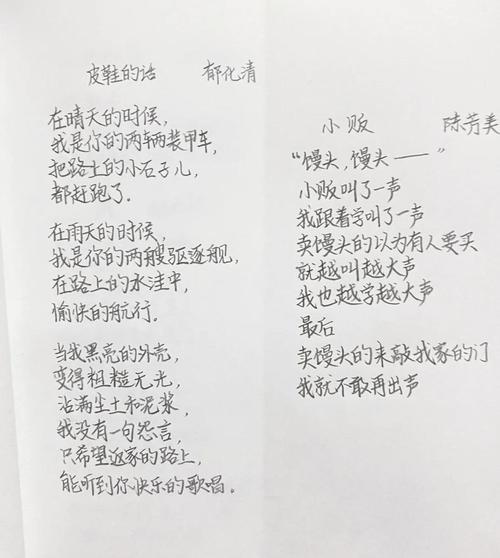 皮鞋的话 郁化清
在晴天的时候,
我是你的两辆装甲车,
把路上的小石子儿,
都赶跑了.
在雨天的时候,
我是你的两艘驱逐舰,
在路上的水洼中,
愉快的航行.
当我黑亮的外壳,
变得粗糙无光,
沾满尘土和泥浆,
我没有一句怨言,
只希望返家的路上,
能听到你快乐的歌唱。
小贩 陈芳美
“馒头,馒头——”
小贩叫了一声
我跟着学叫了一声
卖馒头的以为有人要买
就越叫越大声
我也越学越大声
最后
卖馒头的来敲我家的门
我就不敢再出声